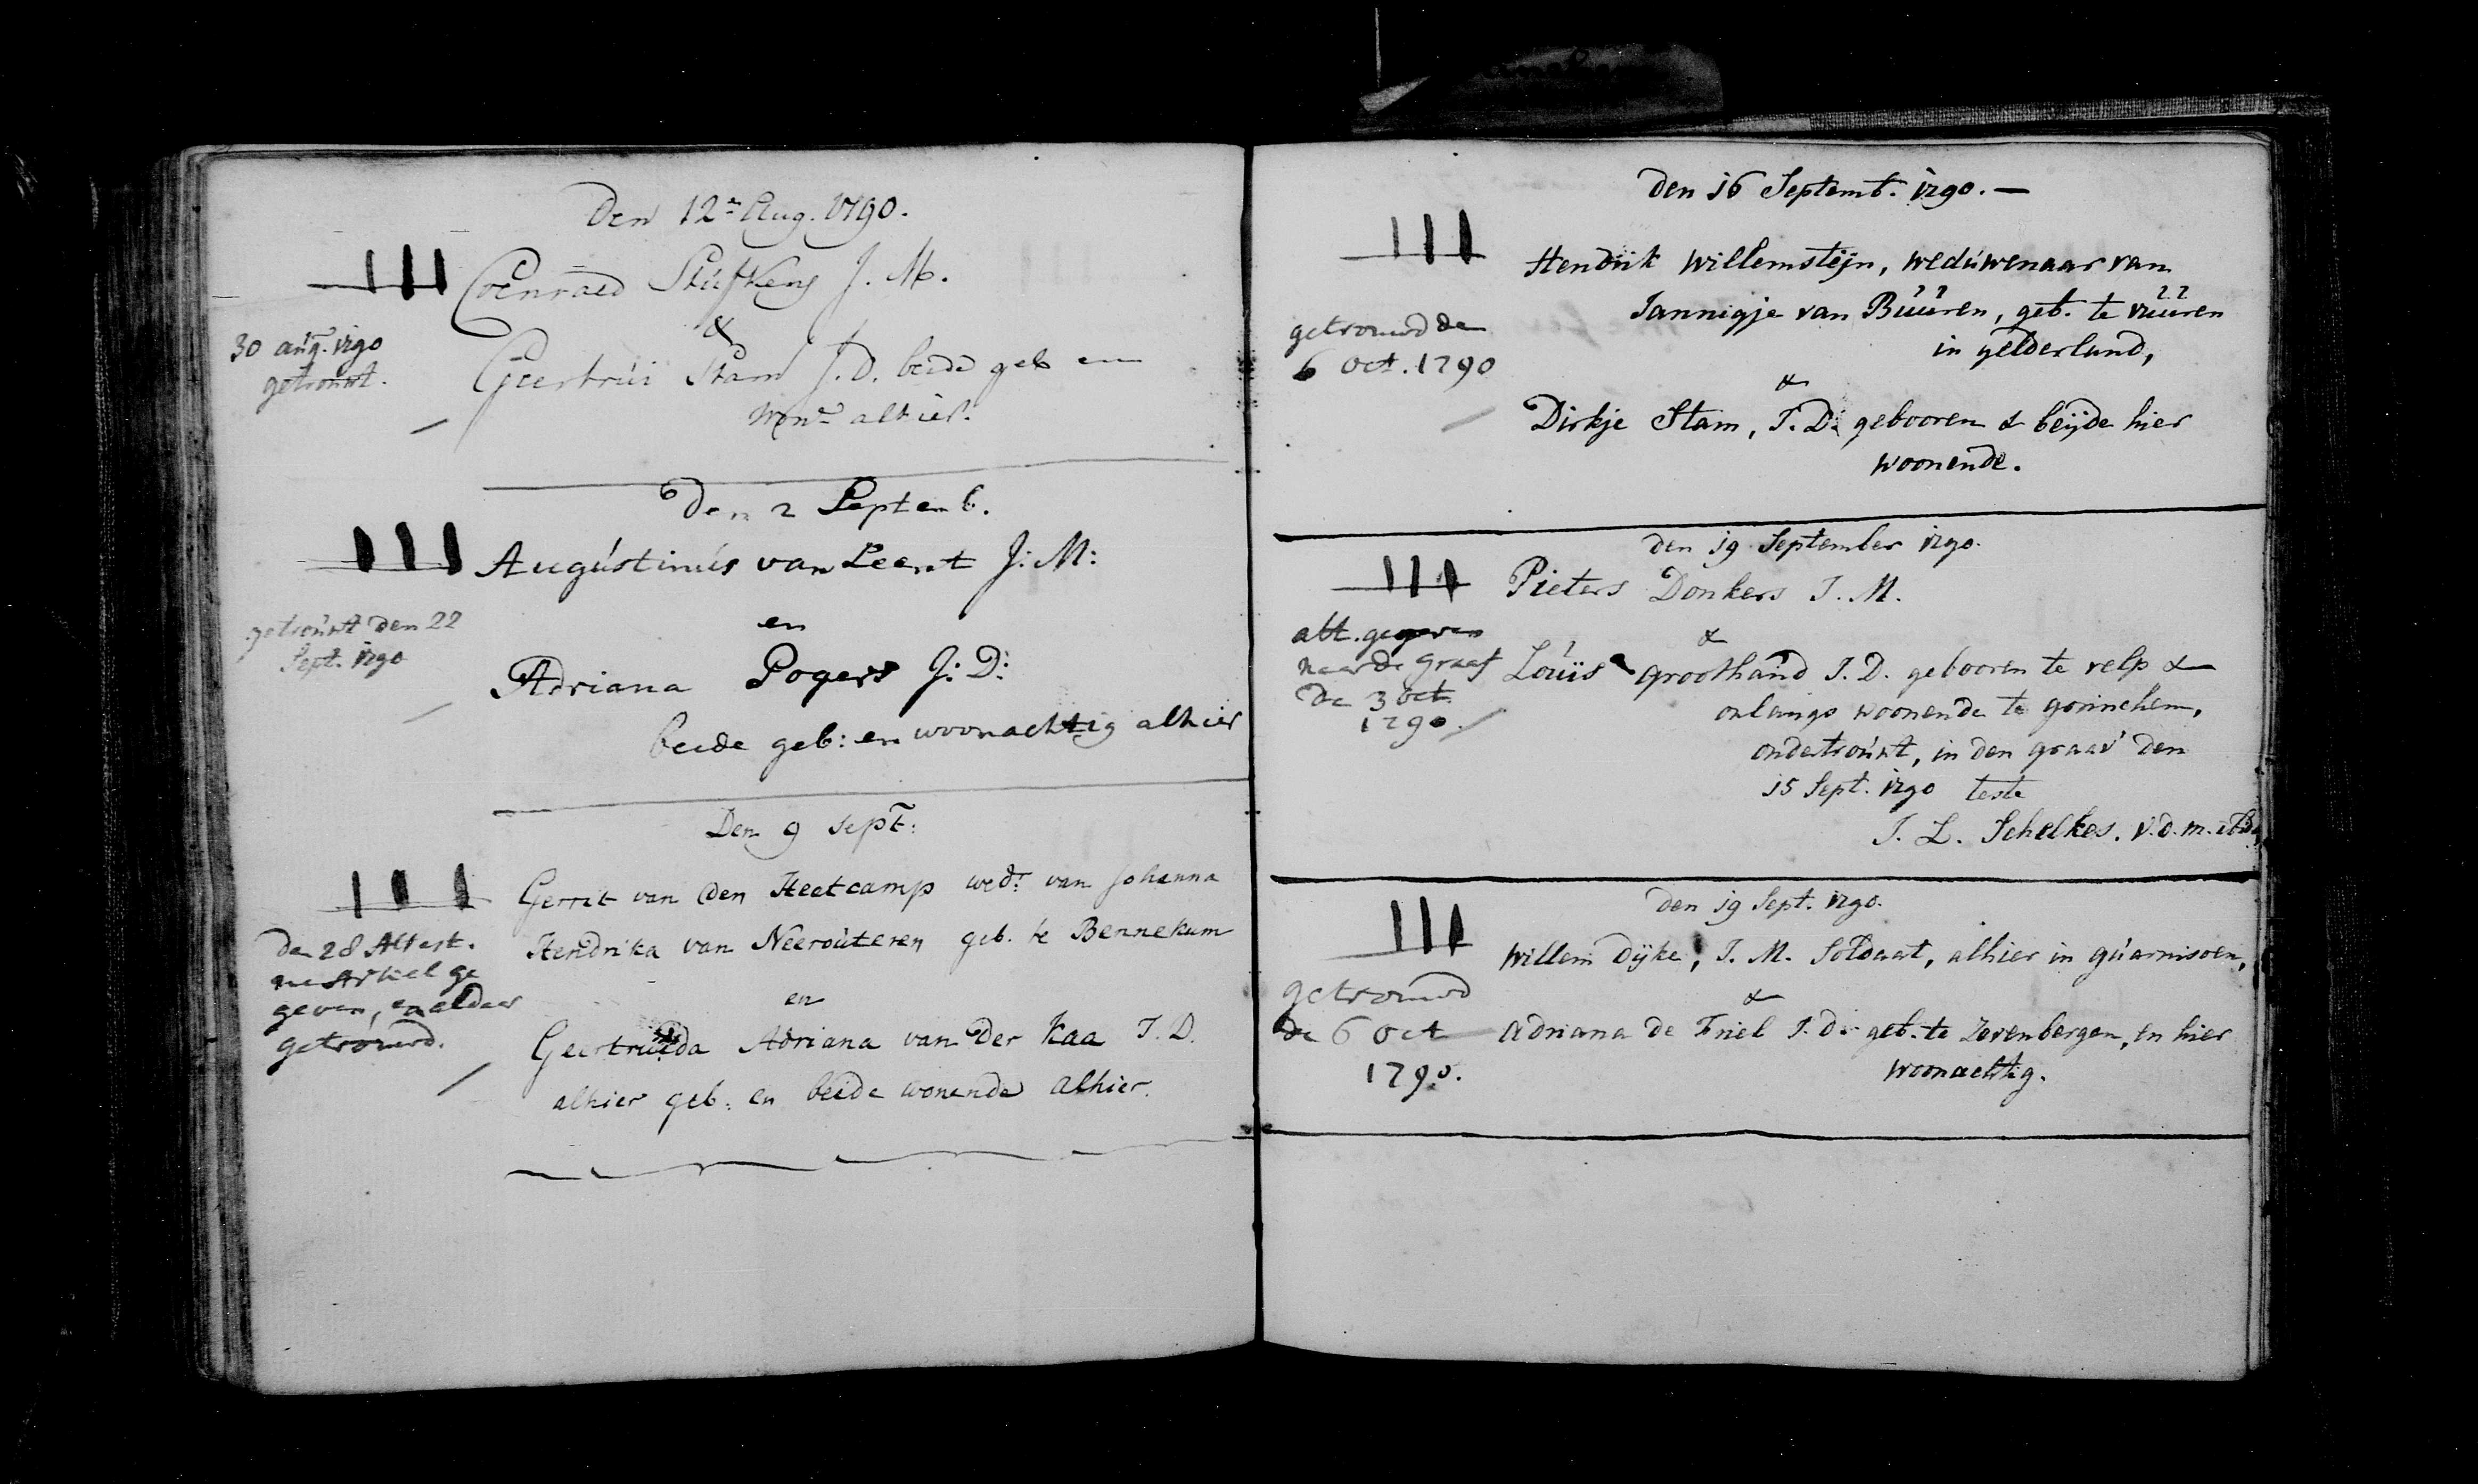 Den 12n Aug. 1790.
III
Coenraed Stufkens J. M.
&
30 aug. 1790
getrouwt.
Geertrui Stam J. D. beide geb en
won. alhier.
Den 2 Septemb.
III
Augustinus van Leent J: M:
en
getrouwt den 22
Sept. 1790
Adriana Pogers J: D:
beide geb: en woonachtig alhier
Den 9 Sept:
III
Gerrit van den Heetcamp wedr. van Johanna
Hendrika van Neerouteren geb. te Bennekum
de 28 Attest.
na Arkel ge
geven, en aldaar
getrouwd.
en
Geertruida Adriana van der Kaa J. D.
alhier geb: en beide wonende alhier.
Den 16 Septemb. 1790. —
III
Hendrik Willemsteijn, weduwenaar van
Jannigje van Buuren, geb. te vuuren
in gelderland,
getrouwd de
6 Oct. 1790
&
Dirkje Stam, J. D. gebooren & beijde hier
woonende.
den 19 September 1790.
III
Pieters Donkers J. M.
&
att. gegeven
naar de Graaf
de 3 oct.
1790.
Louis groothand J. D. gebooren te velp &
onlangs woonende te gorinchem,
ondertrouwt, in den graav den
15 Sept. 1790 teste
J. L. Schelkes. v. d. m. ibid.
den 19 Sept. 1790.
III
Willem Dijke, J. M. Soldaat, alhier in guarnisoen,
&
getrouwd
de 6 Oct
1790.
Adriana de Friel J. D. geb. te Zevenbergen, en hier
woonachtig.